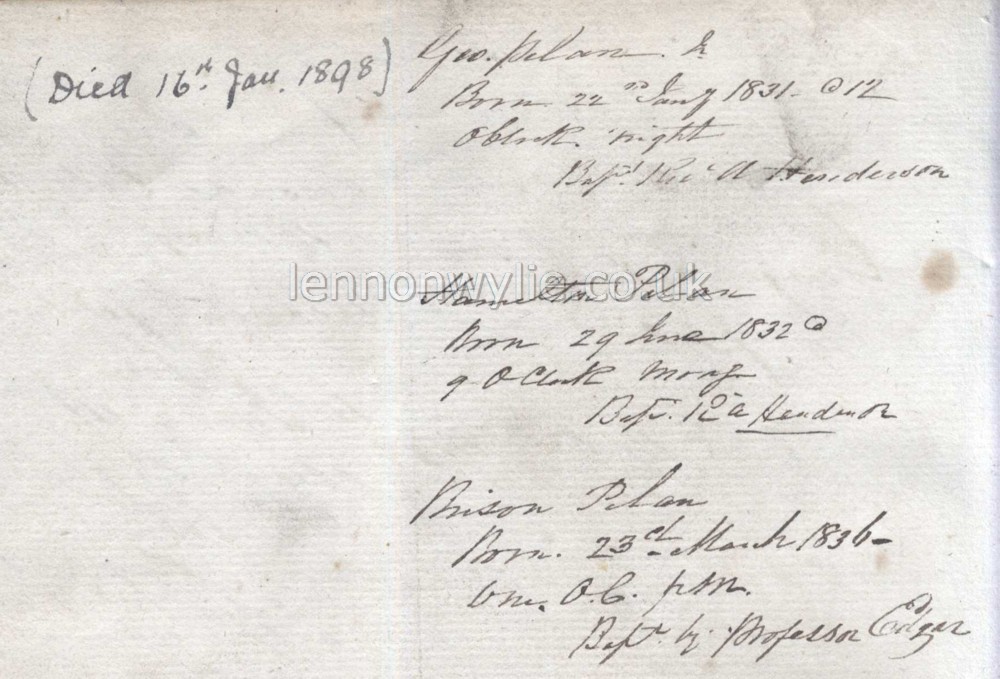 (Died 16th Jan. 1898)
Geo. Pelan Jr
Born 22nd Jany 1831 @ 12
oClock night
Bapd. Revd A Henderson
lennonwylie.co.uk
Hamilton Pelan
Born 29 June 1832 @
9 OClock Morng
Bapd. Rd A Henderson
Pelan
Born. 23rd March 1836
O.C. P.M.
Bapd by Professor Edgar